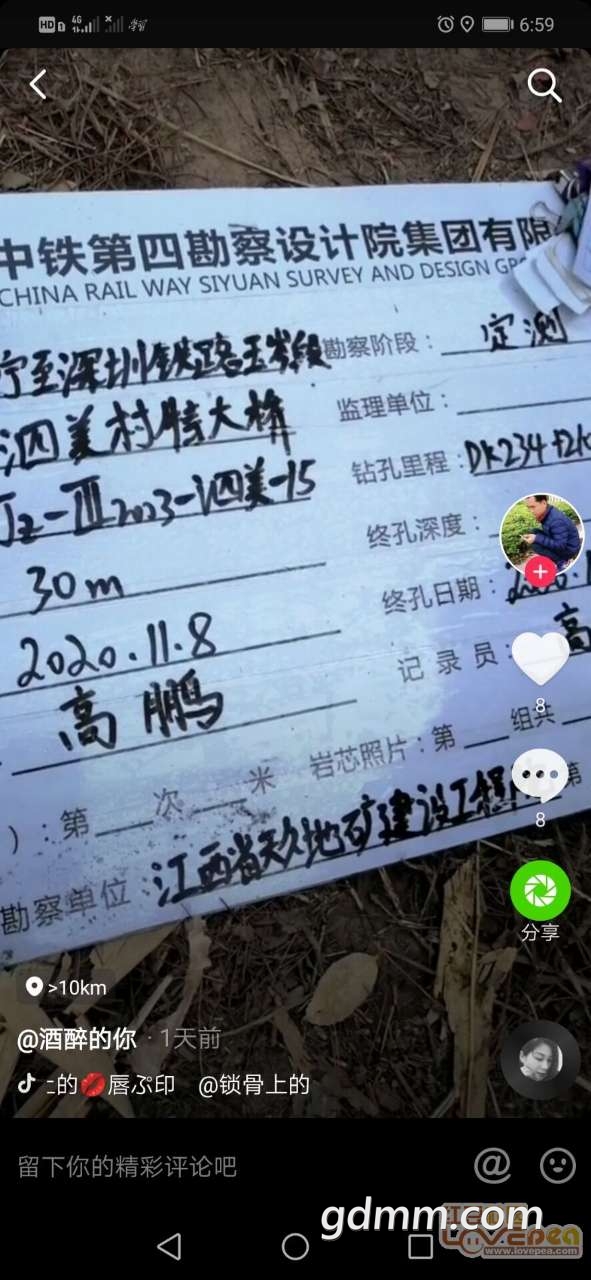 HD 4G 6:59
中铁第四勘察设计院集团有限
CHINA RAIL WAY SIYUAN SURVEY AND DESIGN GR
宁至深圳铁路玉岑段 勘察阶段: 定测
泗美村特大桥 监理单位:
Jz-Ⅲ2023-泗美-15 钻孔里程: DK234+21
30m 终孔深度:
2020.11.8 终孔日期:
高鹏 记录员: 高
): 第 次 米 岩芯照片: 第 组共 第
勘察单位 江西省天久地矿建设工程
8
8
分享
>10km
@酒醉的你 · 1天前
的💋唇ぷ印 @锁骨上的
留下你的精彩评论吧
gdmm.com
红豆社区
LOVEPEA
www.lovepea.com